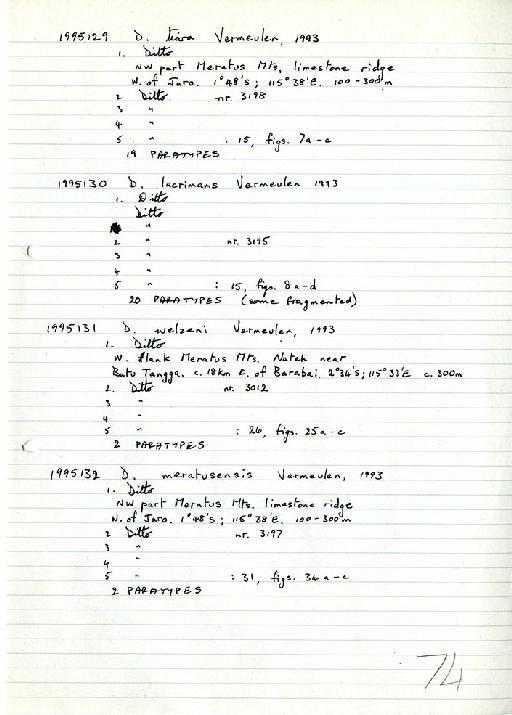 1995129 D. tiara Vermeulen, 1993
1. Ditto
NW part Meratus Mts, limestone ridge
W. of Jaro. 1°48's; 115°38'E. 100-300m
2 Ditto nr. 3198
3 "
4 "
5 " : 15, figs. 7a-e
19 PARATYPES
1995130 D. lacrimans Vermeulen 1993
1. Ditto
Ditto
"
2 " nr. 3195
3 "
4 "
5 " : 15, figs. 8a-d
20 PARATYPES (some fragmented)
1995131 D. welzeni Vermeulen, 1993
1. Ditto
W. flank Meratus Mts. Nateh near
Batu Tangga. c. 18km E. of Barabai. 2°34's; 115°33'E c. 300m
2. Ditto nr. 3012
3 "
4 "
5 " : 26, figs. 25a-c
2 PARATYPES
1995132 D. meratusensis Vermeulen, 1993
1. Ditto
NW part Meratus Mts. limestone ridge
N. of Jaro. 1°48's; 115°38'E. 100-300m
2 Ditto nr. 3197
3 "
4 "
5 " : 31, figs. 34a-c
2 PARATYPES
74